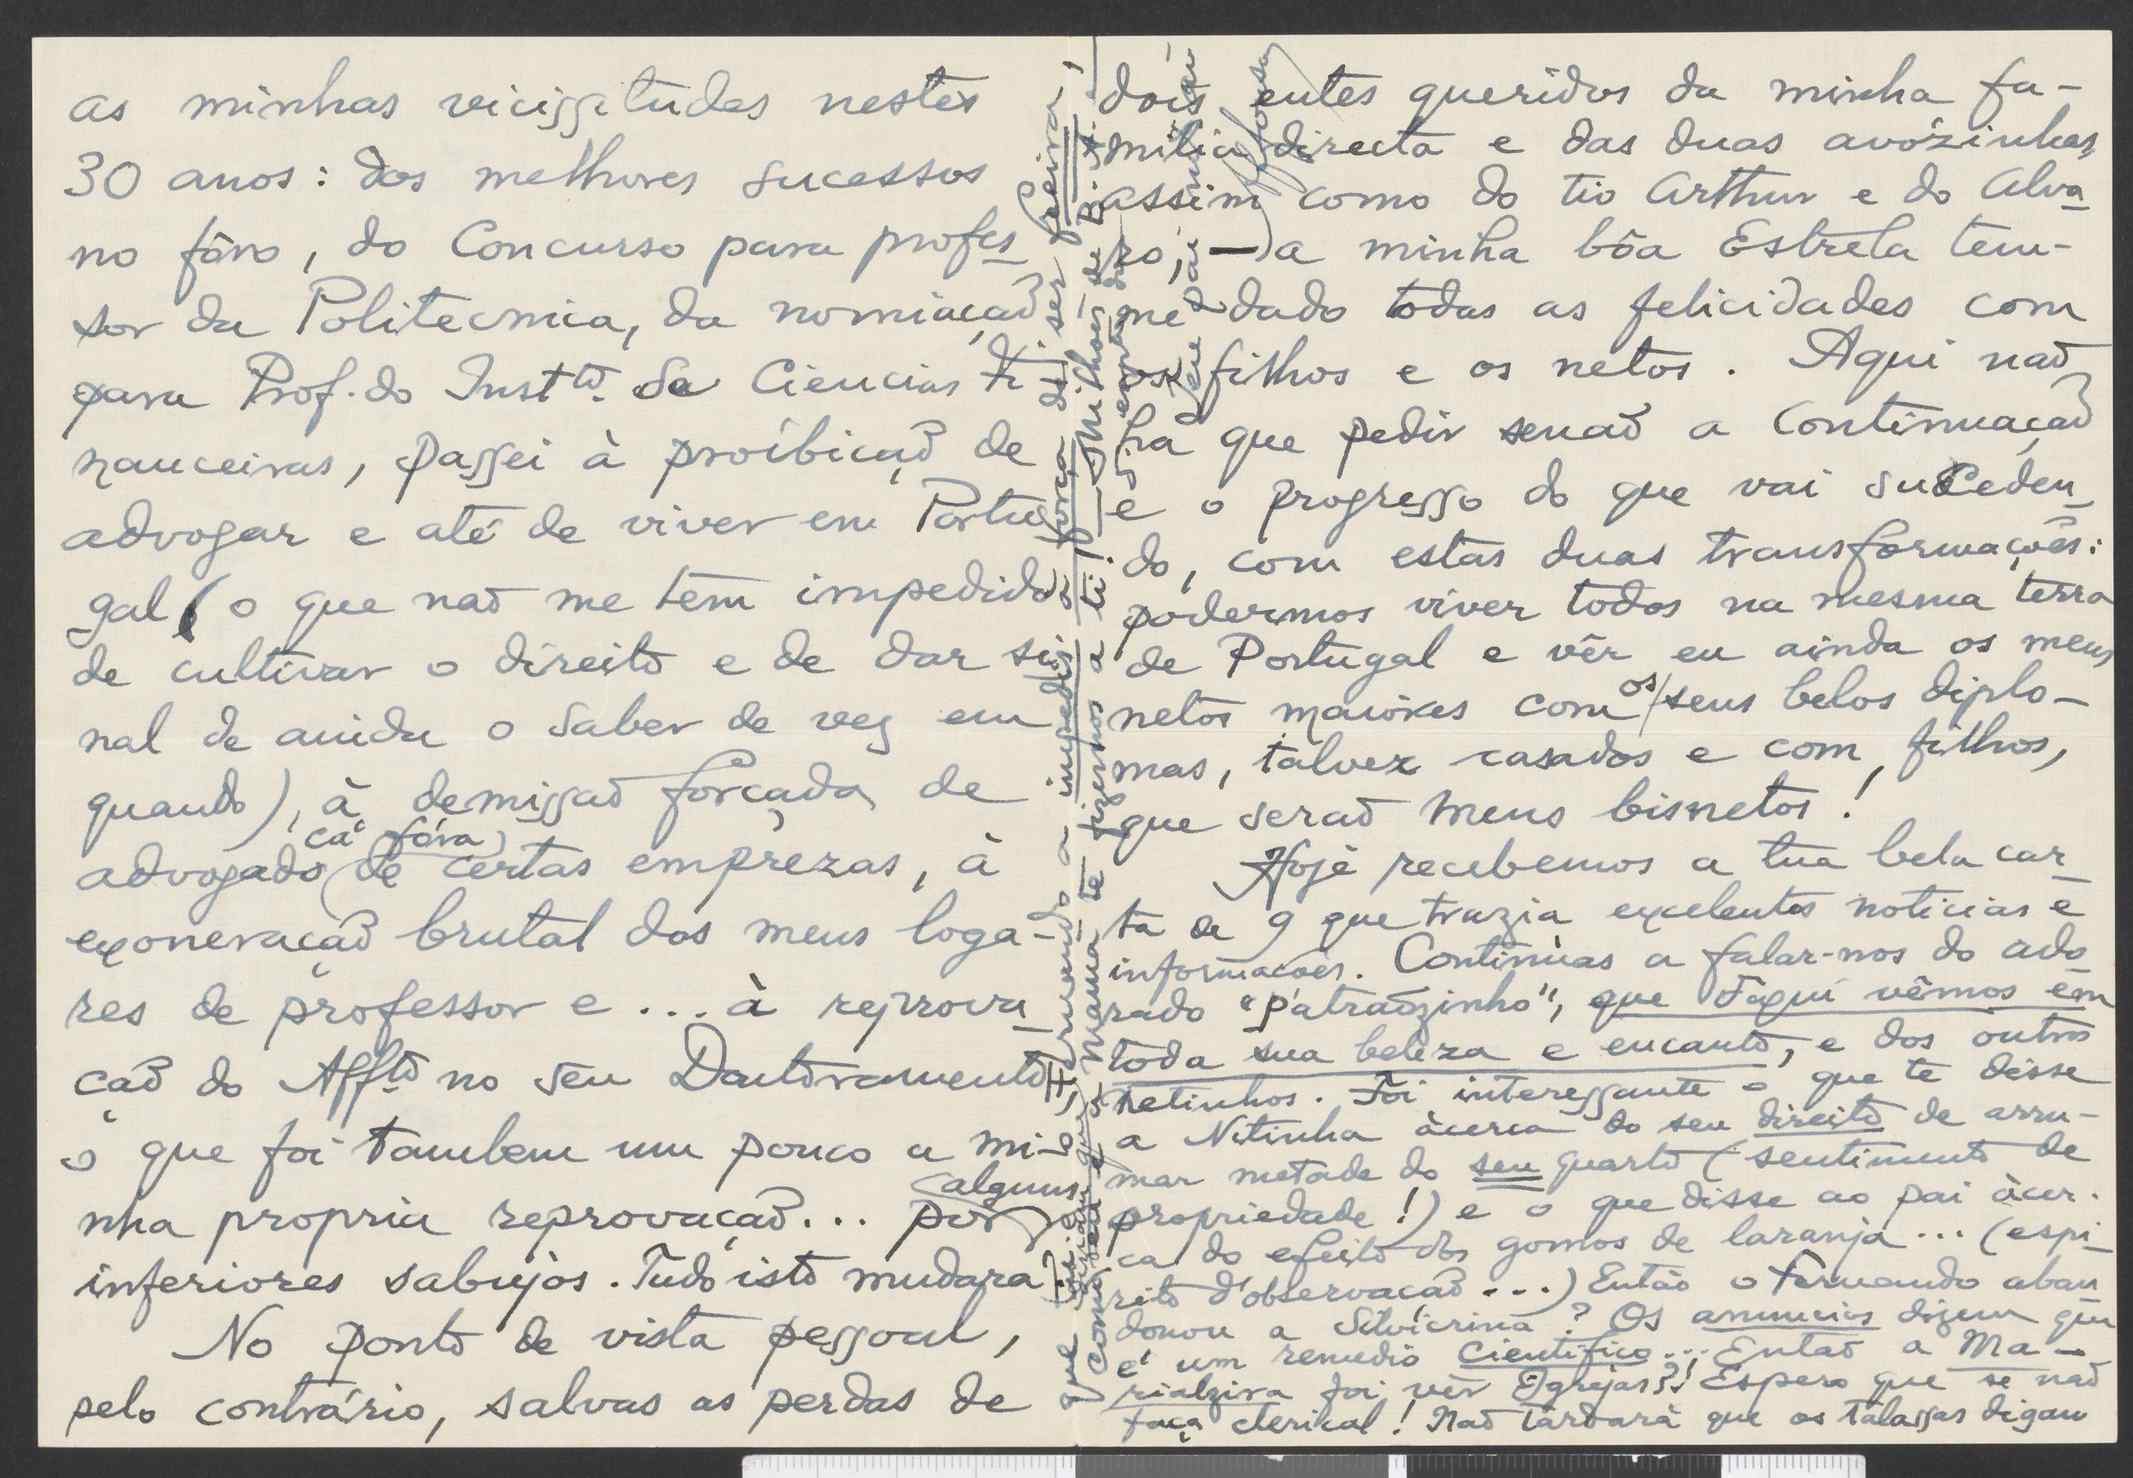 as minhas vicissitudes nestes
30 anos: dos melhores sucessos
no fôro, do Concurso para profes-
sor da Politecnica, da nomiaçaõ
para Prof. do Instto. de Ciencias Fi-
nanceiras, passei à proíbiçaõ de
advogar e até de viver em Portu-
gal (o que naõ me tem impedido
de cultivar o direito e de dar si-
nal de ainda o saber de vez em
quando), à demissaõ forçada de
cá fóra
advogado (de certas emprezas, à
exoneraçaõ brutal dos meus loga-
res de professor e ... à reprova-
çaõ do Affto. no seu Doutoramento,
o que foi tambem um pouco a mi-
nha propria reprovaçaõ... por (alguns
inferiores sabujos. Tudo isto mudará?
No ponto de vista pessoal,
pelo contrário, salvas as perdas de
dois entes queridos da minha fa-
milia directa e das duas avózinhas,
assim como do tio Arthur e do Alva-
ro, —) a minha bôa Estrela tem-
me dado todas as felicidades com
os filhos e os netos. Aqui naõ
ha que pedir senaõ a Continuaçaõ
e o progresso do que vai suceden-
do, com estas duas transformaçoẽs:
podermos viver todos na mesma terra
de Portugal e vêr eu ainda os meus
netos maióres com os seus belos diplo-
mas, talvez casados e com filhos,
que seraõ meus bisnetos!
Hoje recebemos a tua bela car-
ta de 9 que trazia excelentes noticias e
informaçoẽs. Continúas a falar-nos do ado-
rado "Patraõzinho", que d'aqui vêmos em
toda sua beleza e encanto, e dos outros
netinhos. Foi interessante o que te disse
a Nitinha àcerca do seu direito de arru-
mar metade do seu quarto (sentimento de
propriedade!) e o que disse ao pai àcer-
ca do efeito dos gomos de laranja... (espi-
rito d'observaçaõ...) Então o Fernando aban-
donou a Silvicrina? Os anuncios dizem que
é um remedio Cientifico... Entaõ a Ma-
rialzira foi vêr Igrejas?! Espero que se naõ
faça clerical! Naõ tardará que os talassas digam
que
impedir á força de ser freira!
como
Mamã te fizemos a ti! Milhoẽs de B. A.